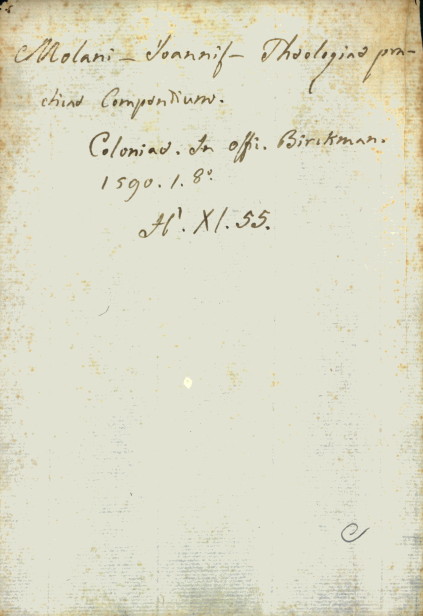 Molani - Joannis - Theologiae pra-
cticae Compendium.
Coloniae. In offi. Birckman.
1590. 1. 8º.
XI. 55.